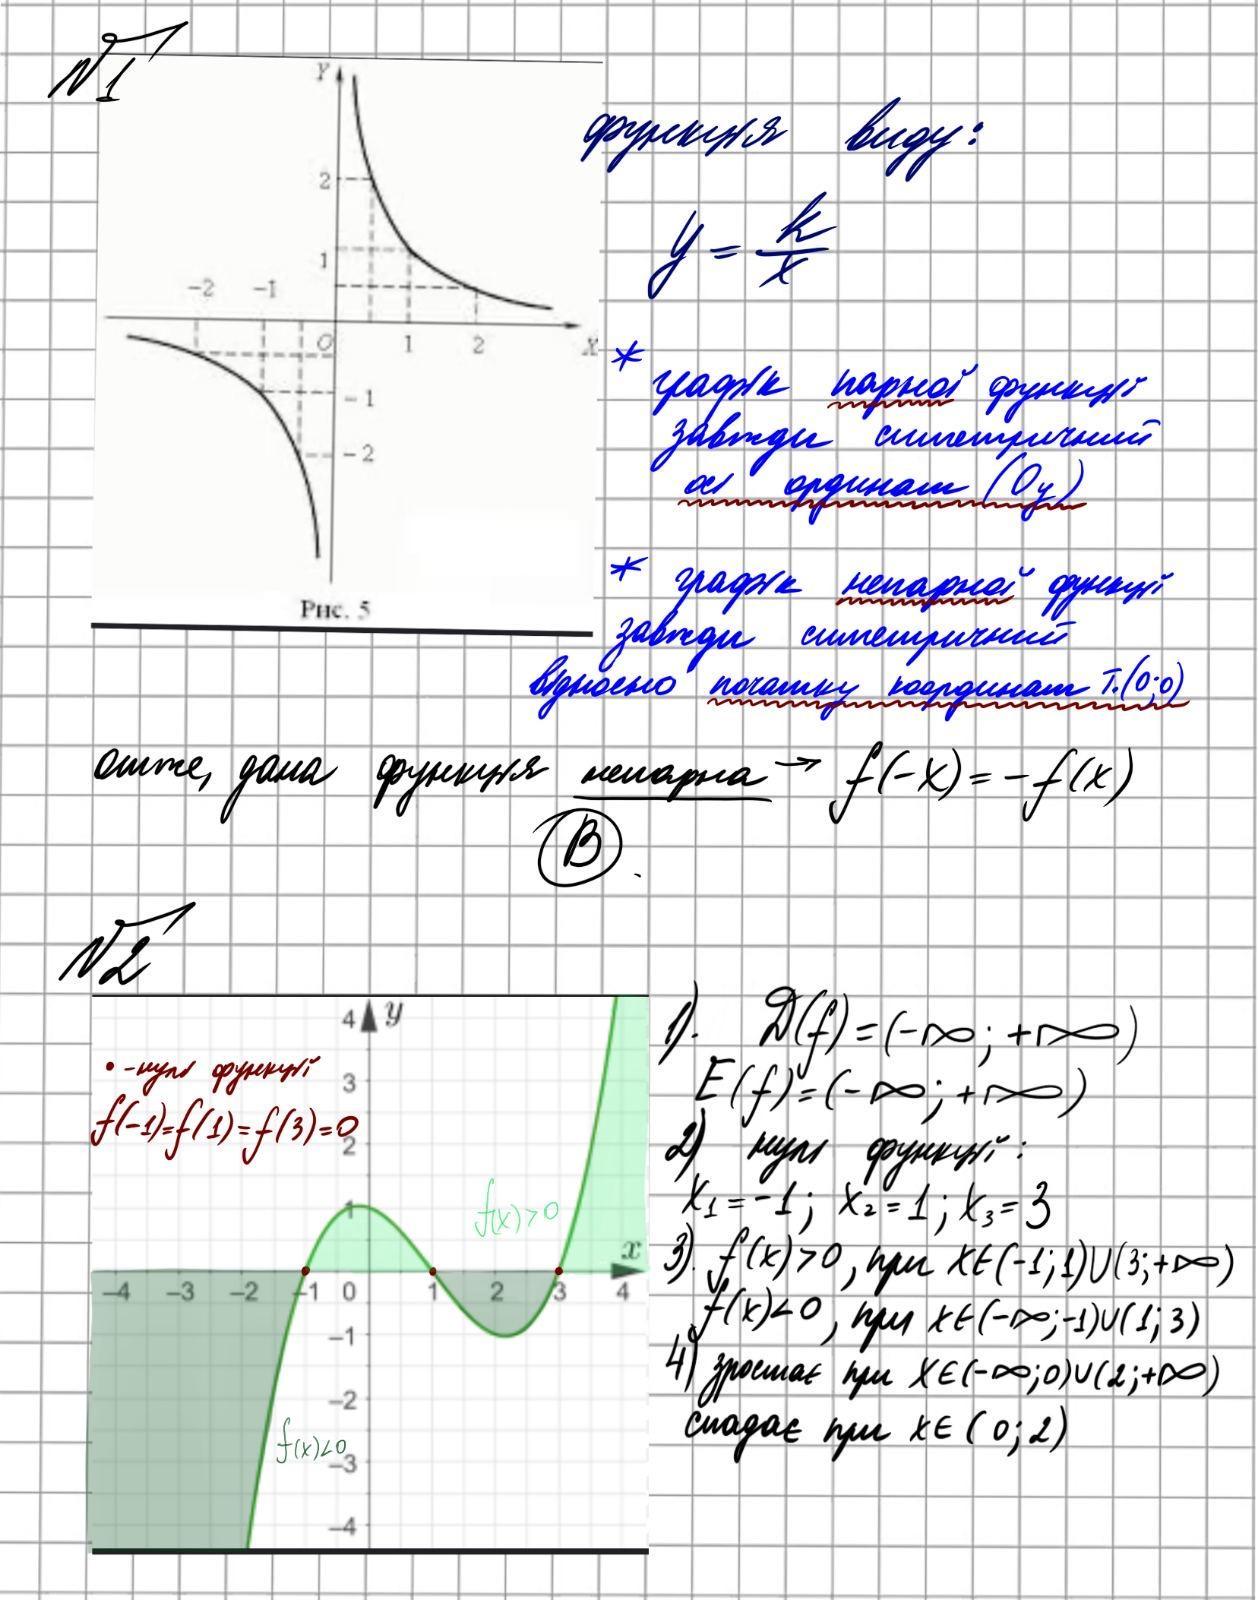 №1
Y
2
1
-2 -1
O 1 2 X
-1
-2
Рис. 5
функція виду:
y = k/x
* графік парної функції
завжди симетричний
осі ординат (Oy)
* графік непарної функції
завжди симетричний
відносно початку координат т.(0;0)
отже, дана функція непарна → f(-x) = -f(x)
В.
№2
y
4
3
2
1
• - нулі функції
f(-1)=f(1)=f(3)=0
f(x)>0
x
-4 -3 -2 -1 0 1 2 3 4
-1
-2
-3
-4
f(x)<0
1). D(f)=(-∞; +∞)
E(f)=(-∞; +∞)
2) нулі функції:
x₁=-1; x₂=1; x₃=3
3). f(x)>0, при x∈(-1;1)∪(3;+∞)
f(x)<0, при x∈(-∞;-1)∪(1;3)
4) зростає при x∈(-∞;0)∪(2;+∞)
спадає при x∈(0;2)